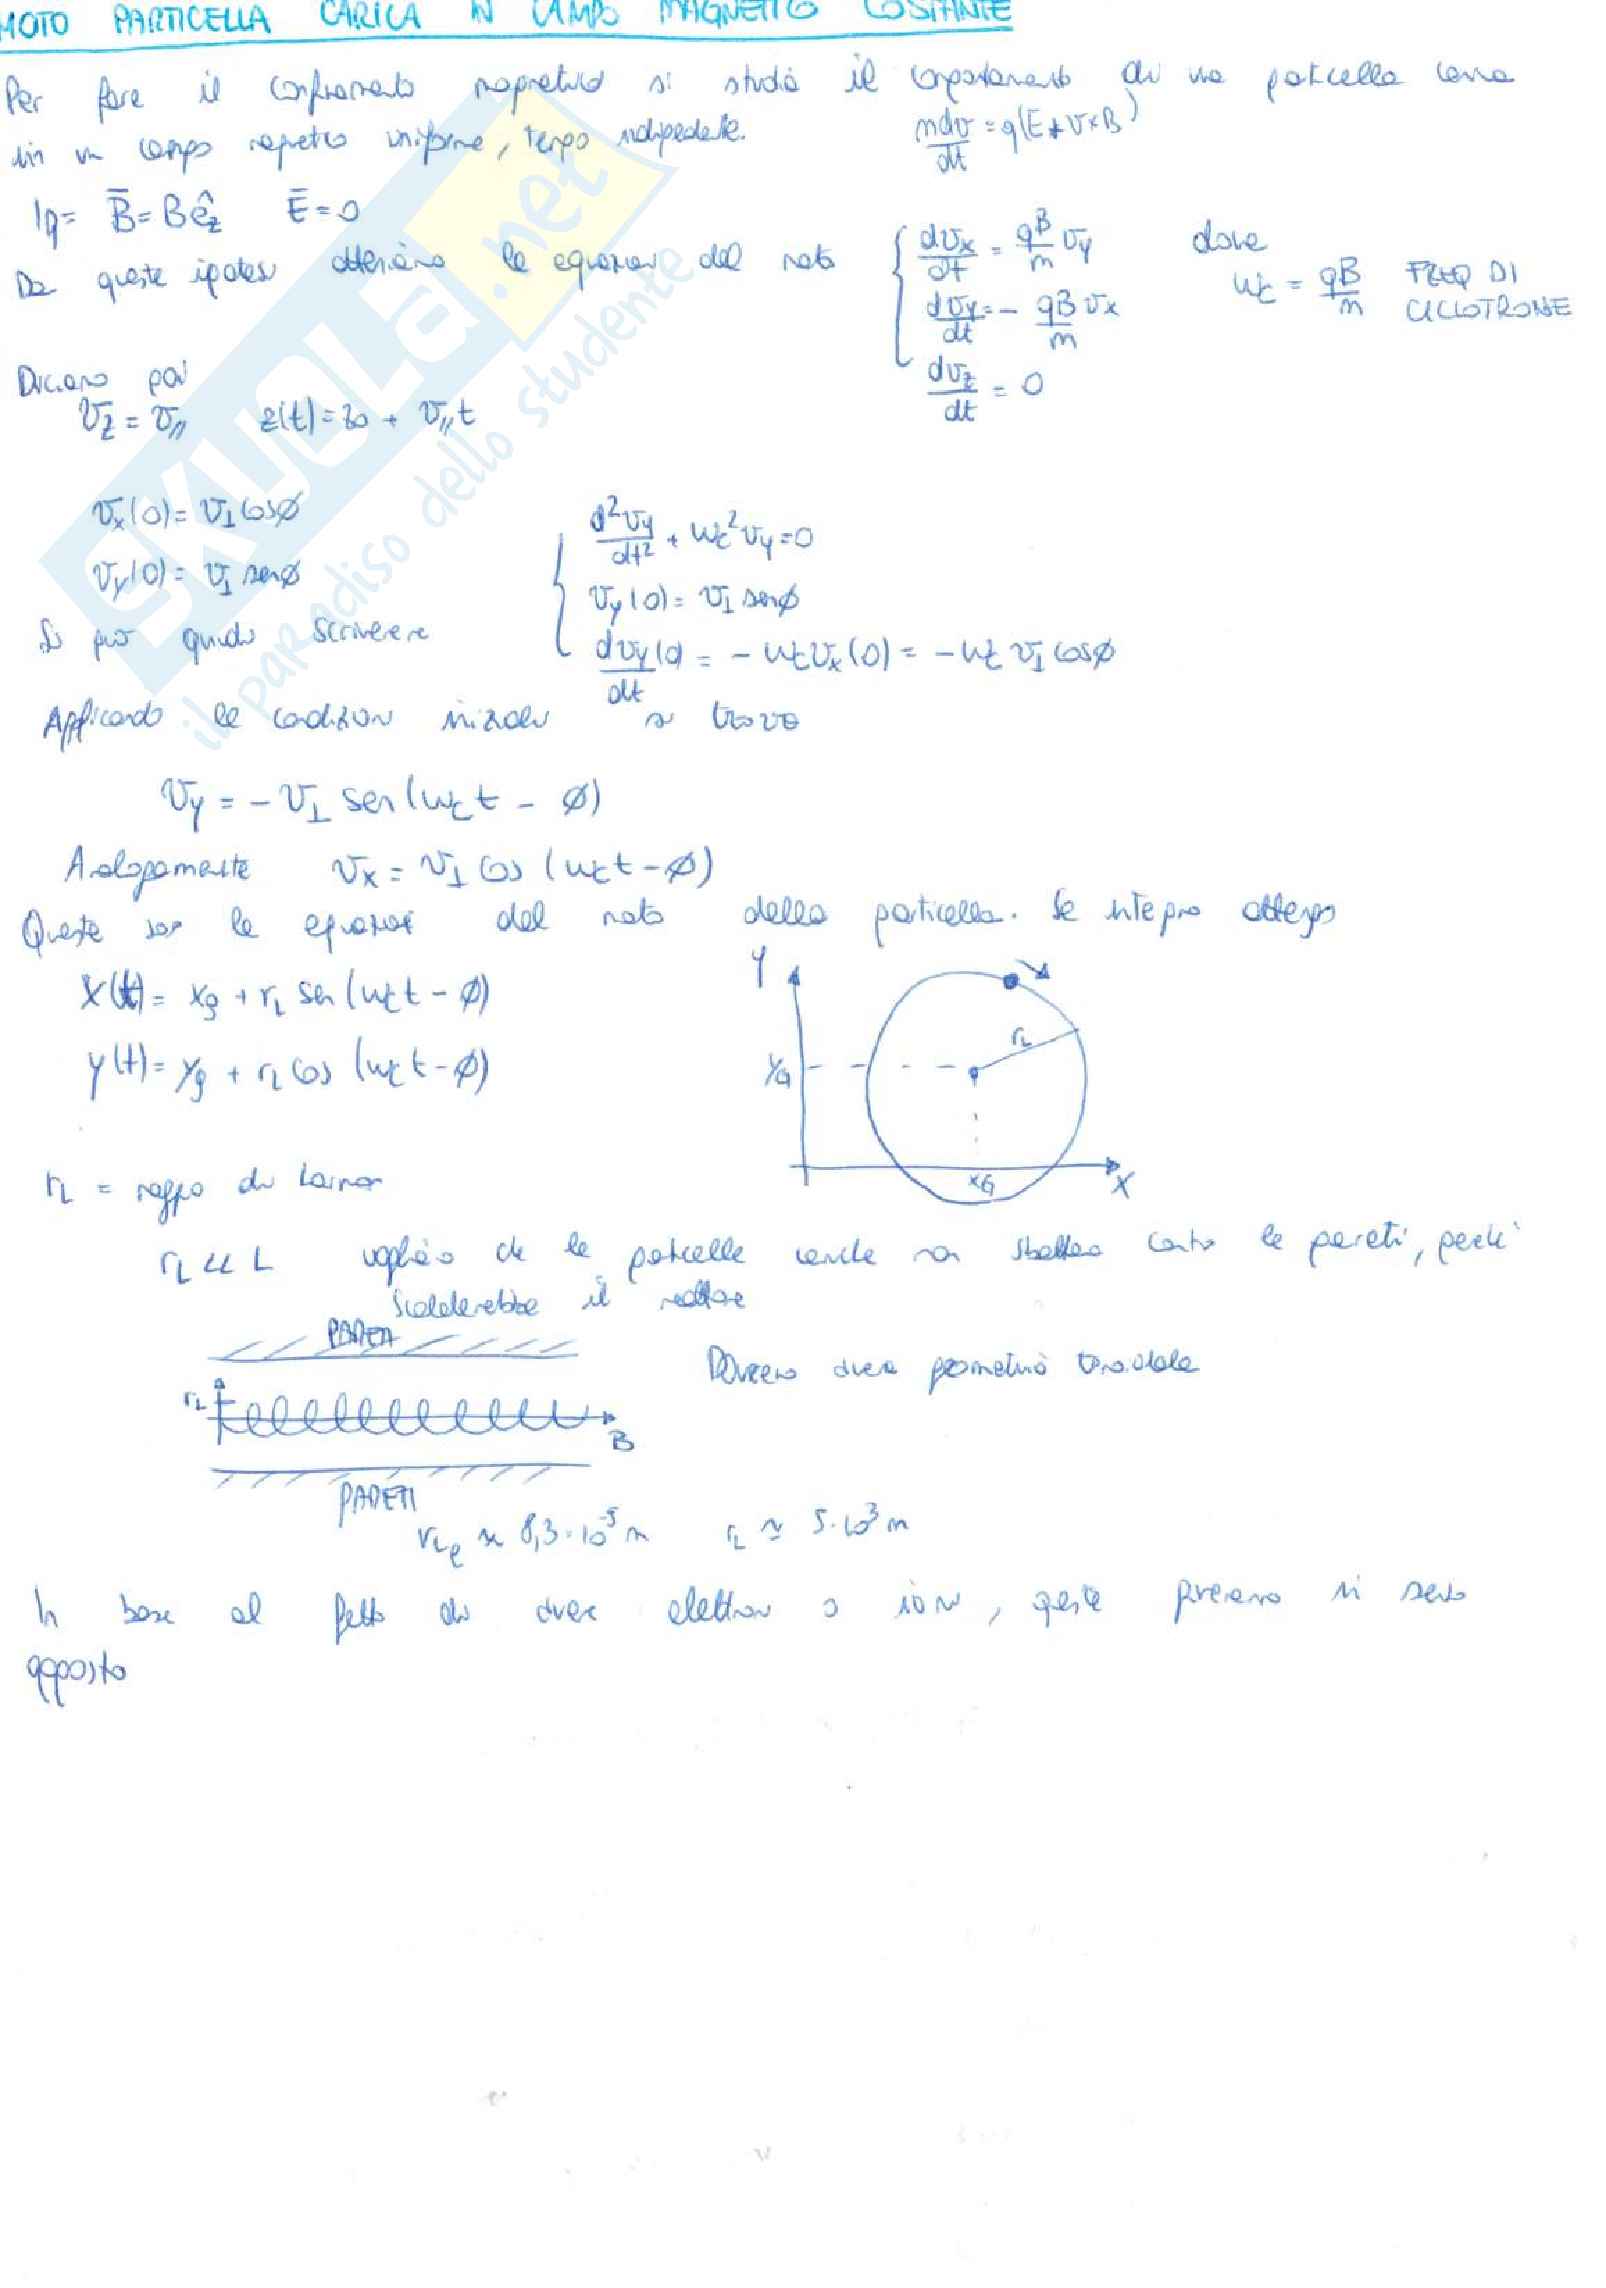 MOTO PARTICELLA CARICA IN CAMPO MAGNETICO COSTANTE
Per fare il confinamento magnetico si studia il comportamento di una particella carica
in un campo magnetico uniforme, tempo indipendente. mdv/dt = q(E + v×B)
Ip = B̄ = Bê_z Ē = 0
Da queste ipotesi otteniamo le equazioni del moto
dv_x/dt = qB/m v_y dove
dv_y/dt = - qB/m v_x ω_c = qB/m FREQ DI CICLOTRONE
dv_z/dt = 0
Diciamo poi
v_z = v_// z(t) = z_0 + v_// t
v_x(0) = v_⊥ cosø
v_y(0) = v_⊥ senø
Si può quindi scrivere
d²v_y/dt² + ω_c² v_y = 0
v_y(0) = v_⊥ senø
dv_y(0)/dt = - ω_c v_x(0) = - ω_c v_⊥ cosø
Applicando le condizioni iniziali si trova
v_y = - v_⊥ sen(ω_c t - ø)
Analogamente v_x = v_⊥ cos(ω_c t - ø)
Queste sono le equazioni del moto della particella. Se integro ottengo
x(t) = x_g + r_L sen(ω_c t - ø)
y(t) = y_g + r_L cos(ω_c t - ø)
Y
r_L
Y_G
X_G
X
r_L = raggio di Larmor
r_L << L vogliamo che le particelle cariche non sbattano contro le pareti, perché
scalderebbe il reattore
PARETI
r_L
B
PARETI
Dovremo avere geometria toroidale
r_Le ≈ 8,3·10^-5 m r_L ≈ 5·10^3 m
In base al fatto di avere elettroni o ioni, queste in senso
opposto
SKUOLA.net
il paradiso dello studente